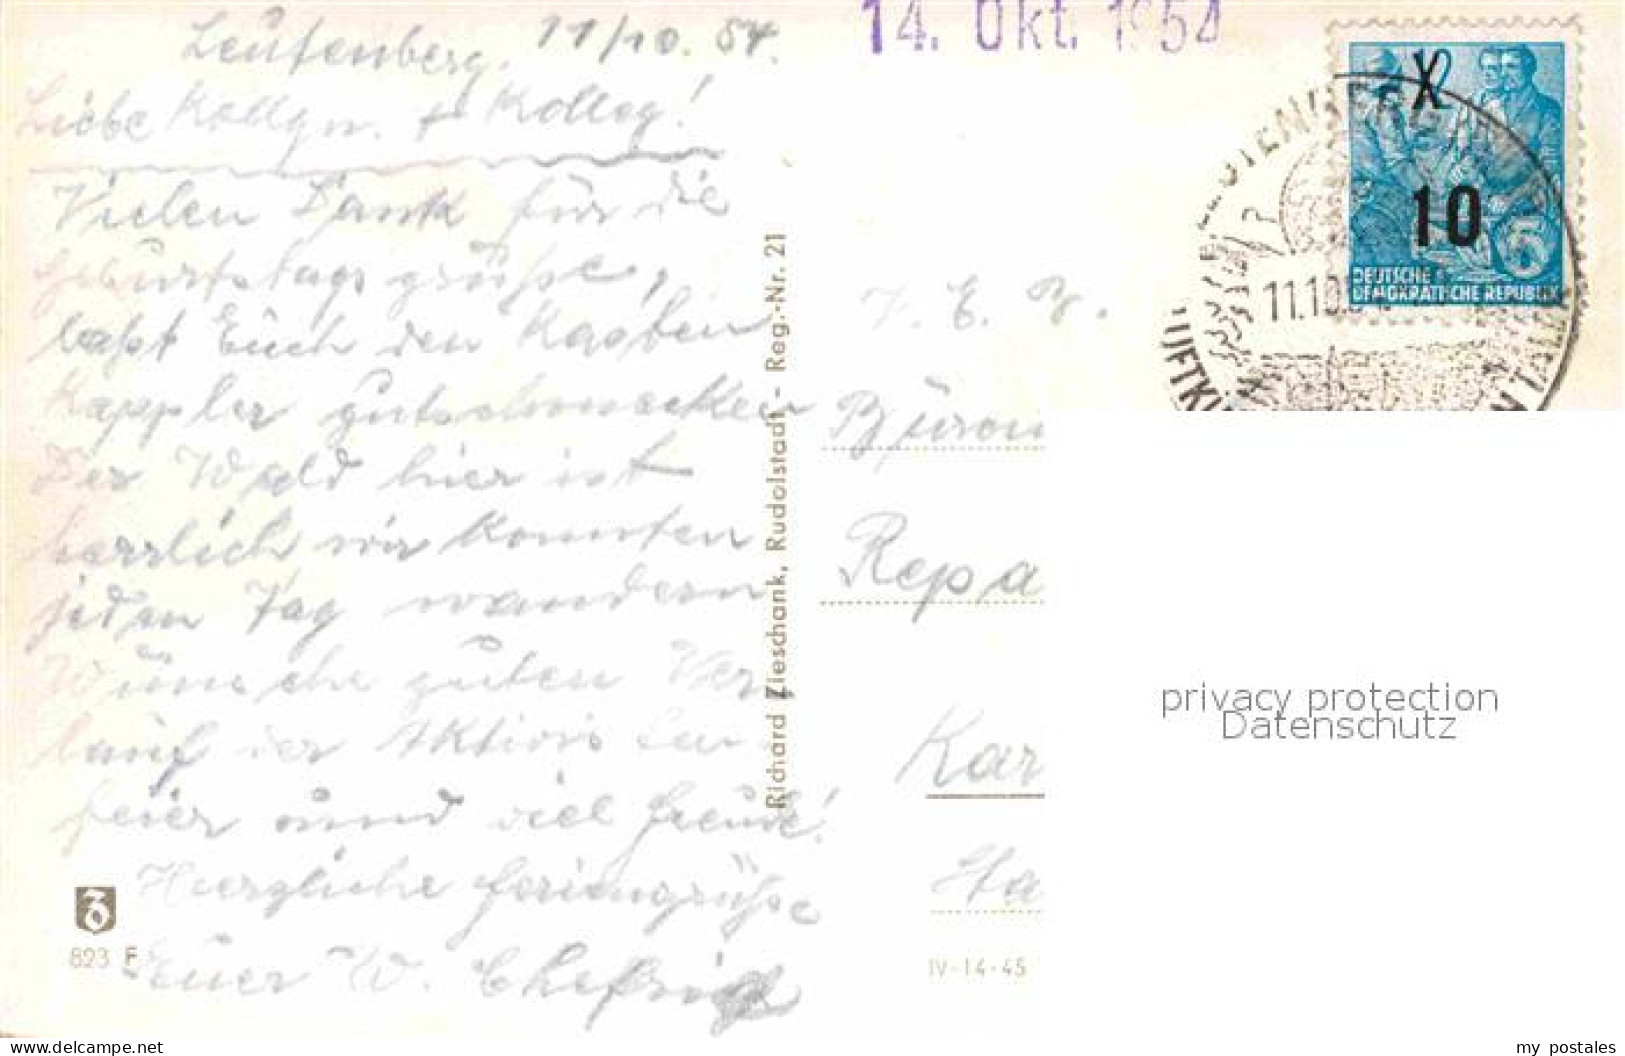 Leutenberg, 11/10. 54.
Liebe Kollgn. + Kolleg!
Vielen Dank für die
Geburtstagsgrüße,
laßt Euch den Kasten
Kappler gutschmecken
Der Wald hier ist
herrlich wir konnten
jeden Tag wandern
Wünsche guten Ver
lauf der Aktions
feier unnd viel Freude!
Herzliche Feriengrüße
Euer W.
823 F
Richard Zieschank, Rudolstadt - Reg.-Nr. 21
14. Okt. 1954
X
10
5
DEUTSCHE
DEMOKRATISCHE REPUBLIK
LEUTENBERG
11.10.54
LUFTKU
N TÄLER
Büron
Repa
Kar
Ha
IV-14-45
privacy protection
Datenschutz
www.delcampe.net
my_postales